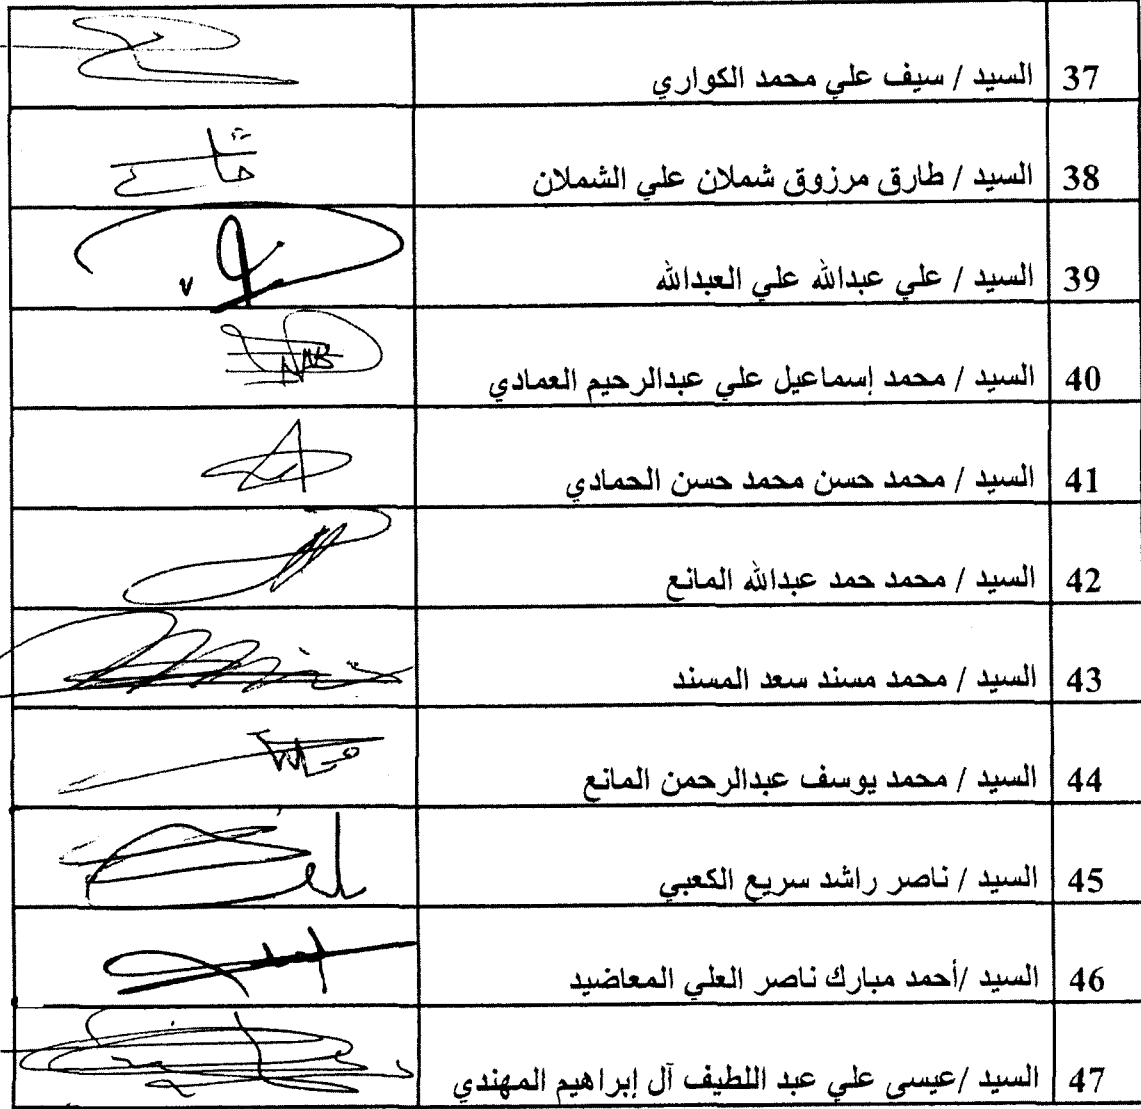 37 السيد / سيف علي محمد الكواري
38 السيد / طارق مرزوق شملان علي الشملان
39 السيد / علي عبدالله علي العبدالله
40 السيد / محمد إسماعيل علي عبدالرحيم العمادي
41 السيد / محمد حسن محمد حسن الحمادي
42 السيد / محمد حمد عبدالله المانع
43 السيد / محمد مسند سعد المسند
44 السيد / محمد يوسف عبدالرحمن المانع
45 السيد / ناصر راشد سريع الكعبي
46 السيد /أحمد مبارك ناصر العلي المعاضيد
47 السيد /عيسى علي عبد اللطيف آل إبراهيم المهندي